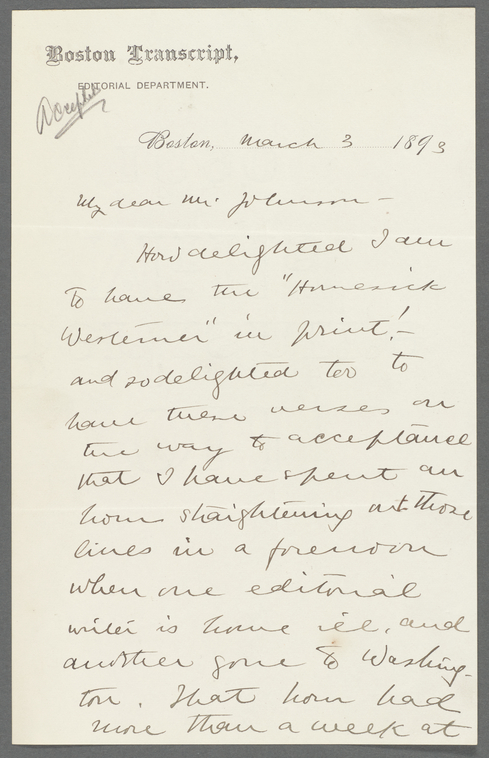 Boston Transcript,
EDITORIAL DEPARTMENT.
Boston, March 3 1893
My dear Mr. Johnson -
How delighted I am
to have the "Homesick
Westerner" in print! -
and so delighted too to
have these verses on
the way to acceptance
that I have spent an
hour straightening out those
lines in a forenoon
when one editorial
writer is home ill, and
another gone to Washing-
ton. That hour had
more than a week at